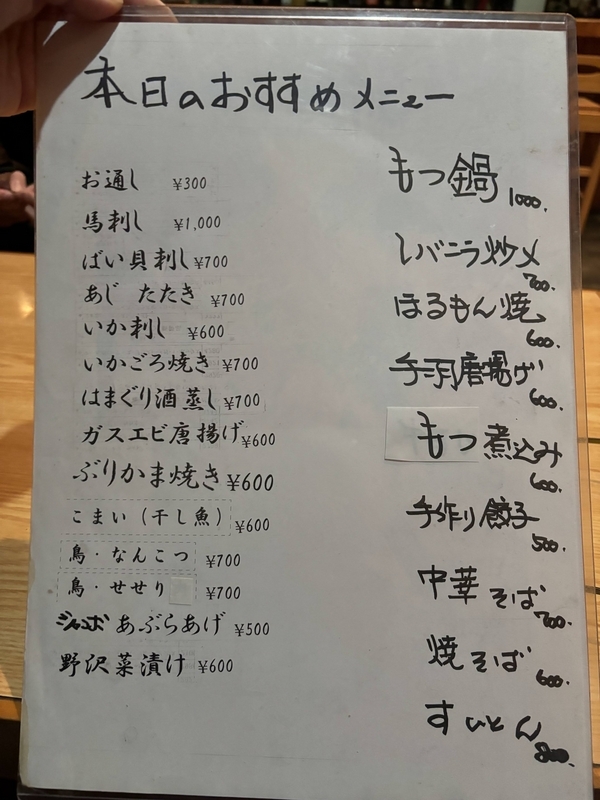 本日のおすすめメニュー
お通し ¥300
馬刺し ¥1,000
ばい貝刺し ¥700
あじ たたき ¥700
いか刺し ¥600
いかごろ焼き ¥700
はまぐり酒蒸し ¥700
ガスエビ唐揚げ ¥600
ぶりかま焼き ¥600
こまい(干し魚) ¥600
鳥・なんこつ ¥700
鳥・せせり ¥700
ジャンボ あぶらあげ ¥500
野沢菜漬け ¥600
もつ鍋 1000.
レバニラ炒メ 700.
ほるもん焼 600.
唐揚げ 600.
もつ煮込み 600.
手作り餃子 500.
中華そば 700.
焼そば 600.
すいとん 800.